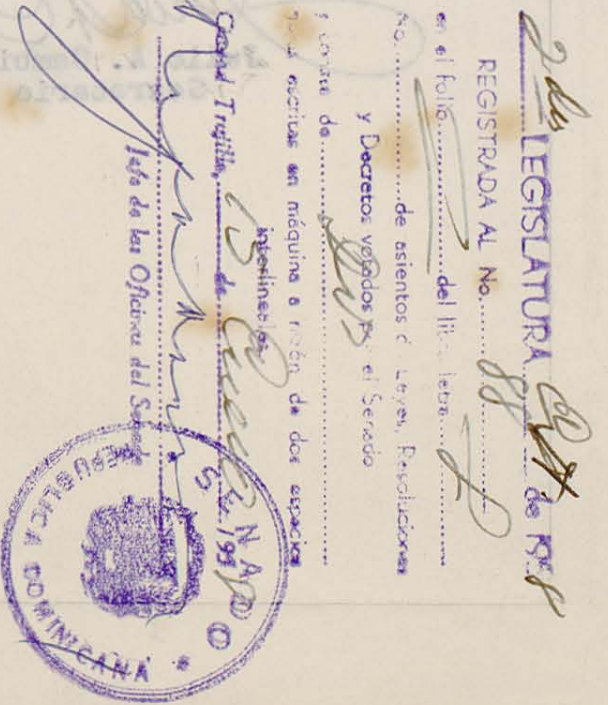 2da LEGISLATURA Ord de 1958
REGISTRADA AL No. 88
en el folio del libro letra
No. de asientos de Leyes, Resoluciones
y Decretos votados por el Senado
y consta de dos
hojas escritas en máquina a razón de dos espacios
interlineales
Ciudad Trujillo, 15 de Enero de 195
Jefe de las Oficinas del Senado
SENADO
REPUBLICA DOMINICANA
Secretario